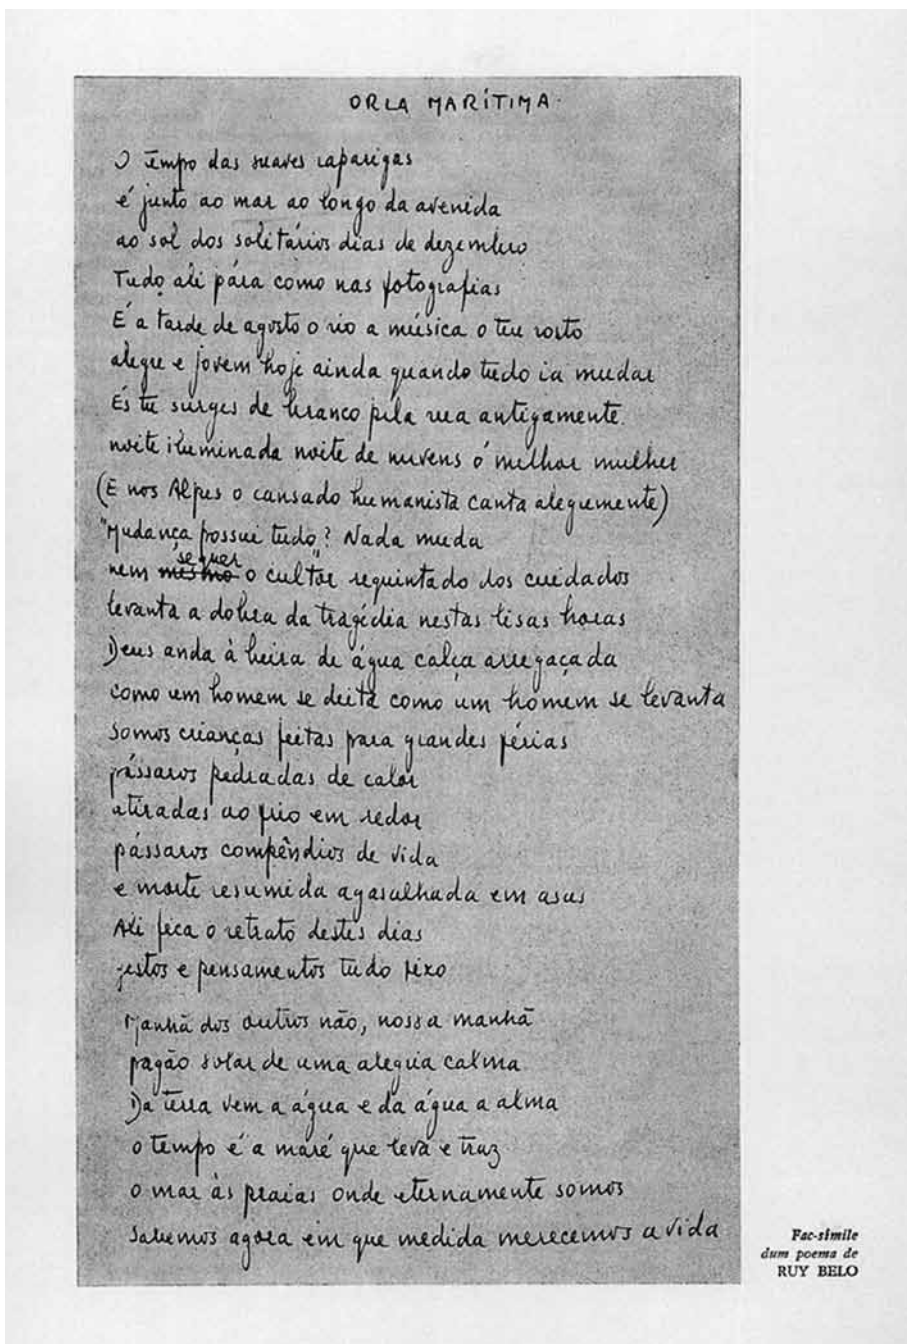 ORLA MARÍTIMA
O tempo das suaves raparigas
é junto ao mar ao longo da avenida
ao sol dos solitários dias de dezembro
Tudo ali pára como nas fotografias
É a tarde de agosto o rio a música o teu rosto
alegre e jovem hoje ainda quando tudo ia mudar
És tu surges de branco pela rua antigamente
noite iluminada noite de nuvens ó melhor mulher
(E nos Alpes o cansado humanista canta alegremente)
"Mudança possui tudo"? Nada muda
nem mesmo sequer o cultor requintado dos cuidados
levanta a dobra da tragédia nestas lisas horas
Deus anda à beira de água calça arregaçada
como um homem se deita como um homem se levanta
Somos crianças feitas para grandes férias
pássaros pedradas de calor
atiradas ao frio em redor
pássaros compêndios de vida
e morte resumida agasalhada em asas
Ali fica o retrato destes dias
gestos e pensamentos tudo fixo
Manhã dos outros não, nossa manhã
pagão solar de uma alegria calma
Da terra vem a água e da água a alma
o tempo é a maré que leva e traz
o mar às praias onde eternamente somos
Sabemos agora em que medida merecemos a vida
Fac-símile
dum poema de
RUY BELO